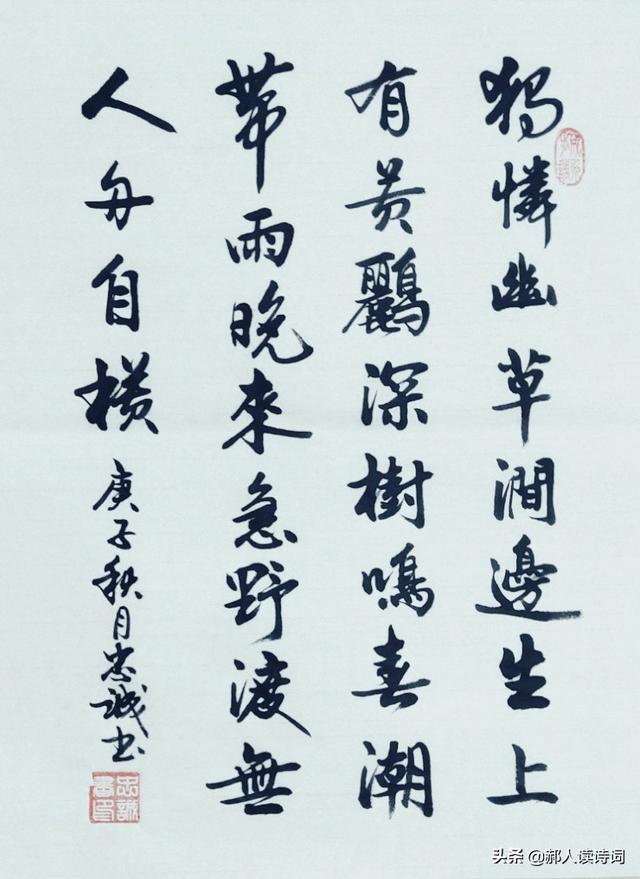 獨憐幽草澗邊生上
有黃鸝深樹鳴春潮
帶雨晚來急野渡無
人舟自橫
庚子秋月忠誠書
忠誠書印
头条 @郝人读诗词